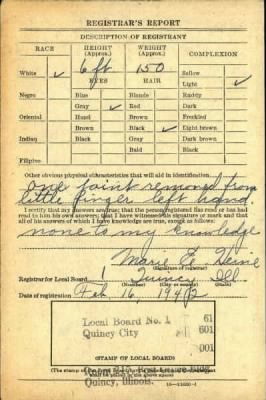 REGISTRAR'S REPORT
DESCRIPTION OF REGISTRANT
RACE HEIGHT (Approx.) WEIGHT (Approx.) COMPLEXION
White ✓ 6 ft 150 Sallow
EYES HAIR Light ✓
Negro Blue Blonde Ruddy
Gray ✓ Red Dark
Oriental Hazel Brown Freckled
Brown Black ✓ Light brown
Indian Black Gray Dark brown
Bald Black
Filipino
Other obvious physical characteristics that will aid in identification
one joint removed from
little finger left hand.
I certify that my answers are true; that the person registered has read or has had
read to him his own answers; that I have witnessed his signature or mark and that
all of his answers of which I have knowledge are true, except as follows:
none to my knowledge
Marie E.
(Signature of registrar)
Registrar for Local Board 1 Quincy Ill
(Number) (City or county) (State)
Date of registration Feb 16, 1942
Local Board No. 1 61
Quincy City 601
001
(STAMP OF LOCAL BOARD)
(The stamp of the Local Board
shall be placed in the above space.)
Quincy, Illinois.